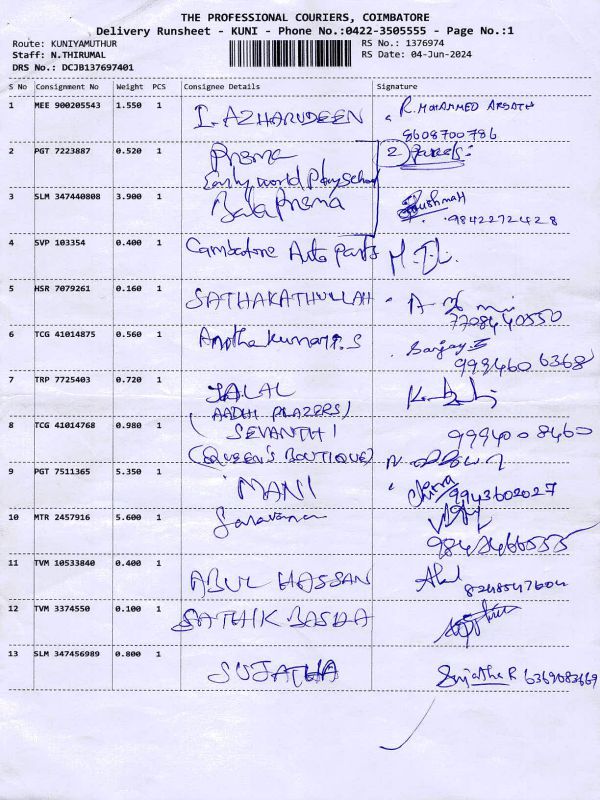 THE PROFESSIONAL COURIERS, COIMBATORE
Delivery Runsheet - KUNI - Phone No.:0422-3505555 - Page No.:1
Route: KUNIYAMUTHUR
RS No.: 1376974
Staff: N.THIRUMAL
RS Date: 04-Jun-2024
DRS No.: DCJB137697401
S No Consignment No Weight PCS Consignee Details Signature
1 MEE 900205543 1.550 1 I. AZHARUDEEN R. MOHAMMED ARSATH
8608700786
2 PGT 7223887 0.520 1 Prema 2
Early world Playschool
3 SLM 347440808 3.900 1 Bala Prema
9842272428
4 SVP 103354 0.400 1 Coimbatore Auto Parts
5 HSR 7079261 0.160 1 SATHAKATHULLAH
7708440550
6 TCG 41014875 0.560 1 S Sanjay
999460 6368
7 TRP 7725403 0.720 1 JALAL
(AADHI BLAZERS)
8 TCG 41014768 0.980 1 SEVANTHI 999400 8460
(QUEEN'S BOUTIQUE)
9 PGT 7511365 5.350 1 MANI 9943602027
10 MTR 2457916 5.600 1 Saravana
11 TVM 10533840 0.400 1 ABUL HASSAN
12 TVM 3374550 0.100 1 SATHIK BASDA
13 SLM 347456989 0.800 1 SUJATHA Sujatha R 6369083669